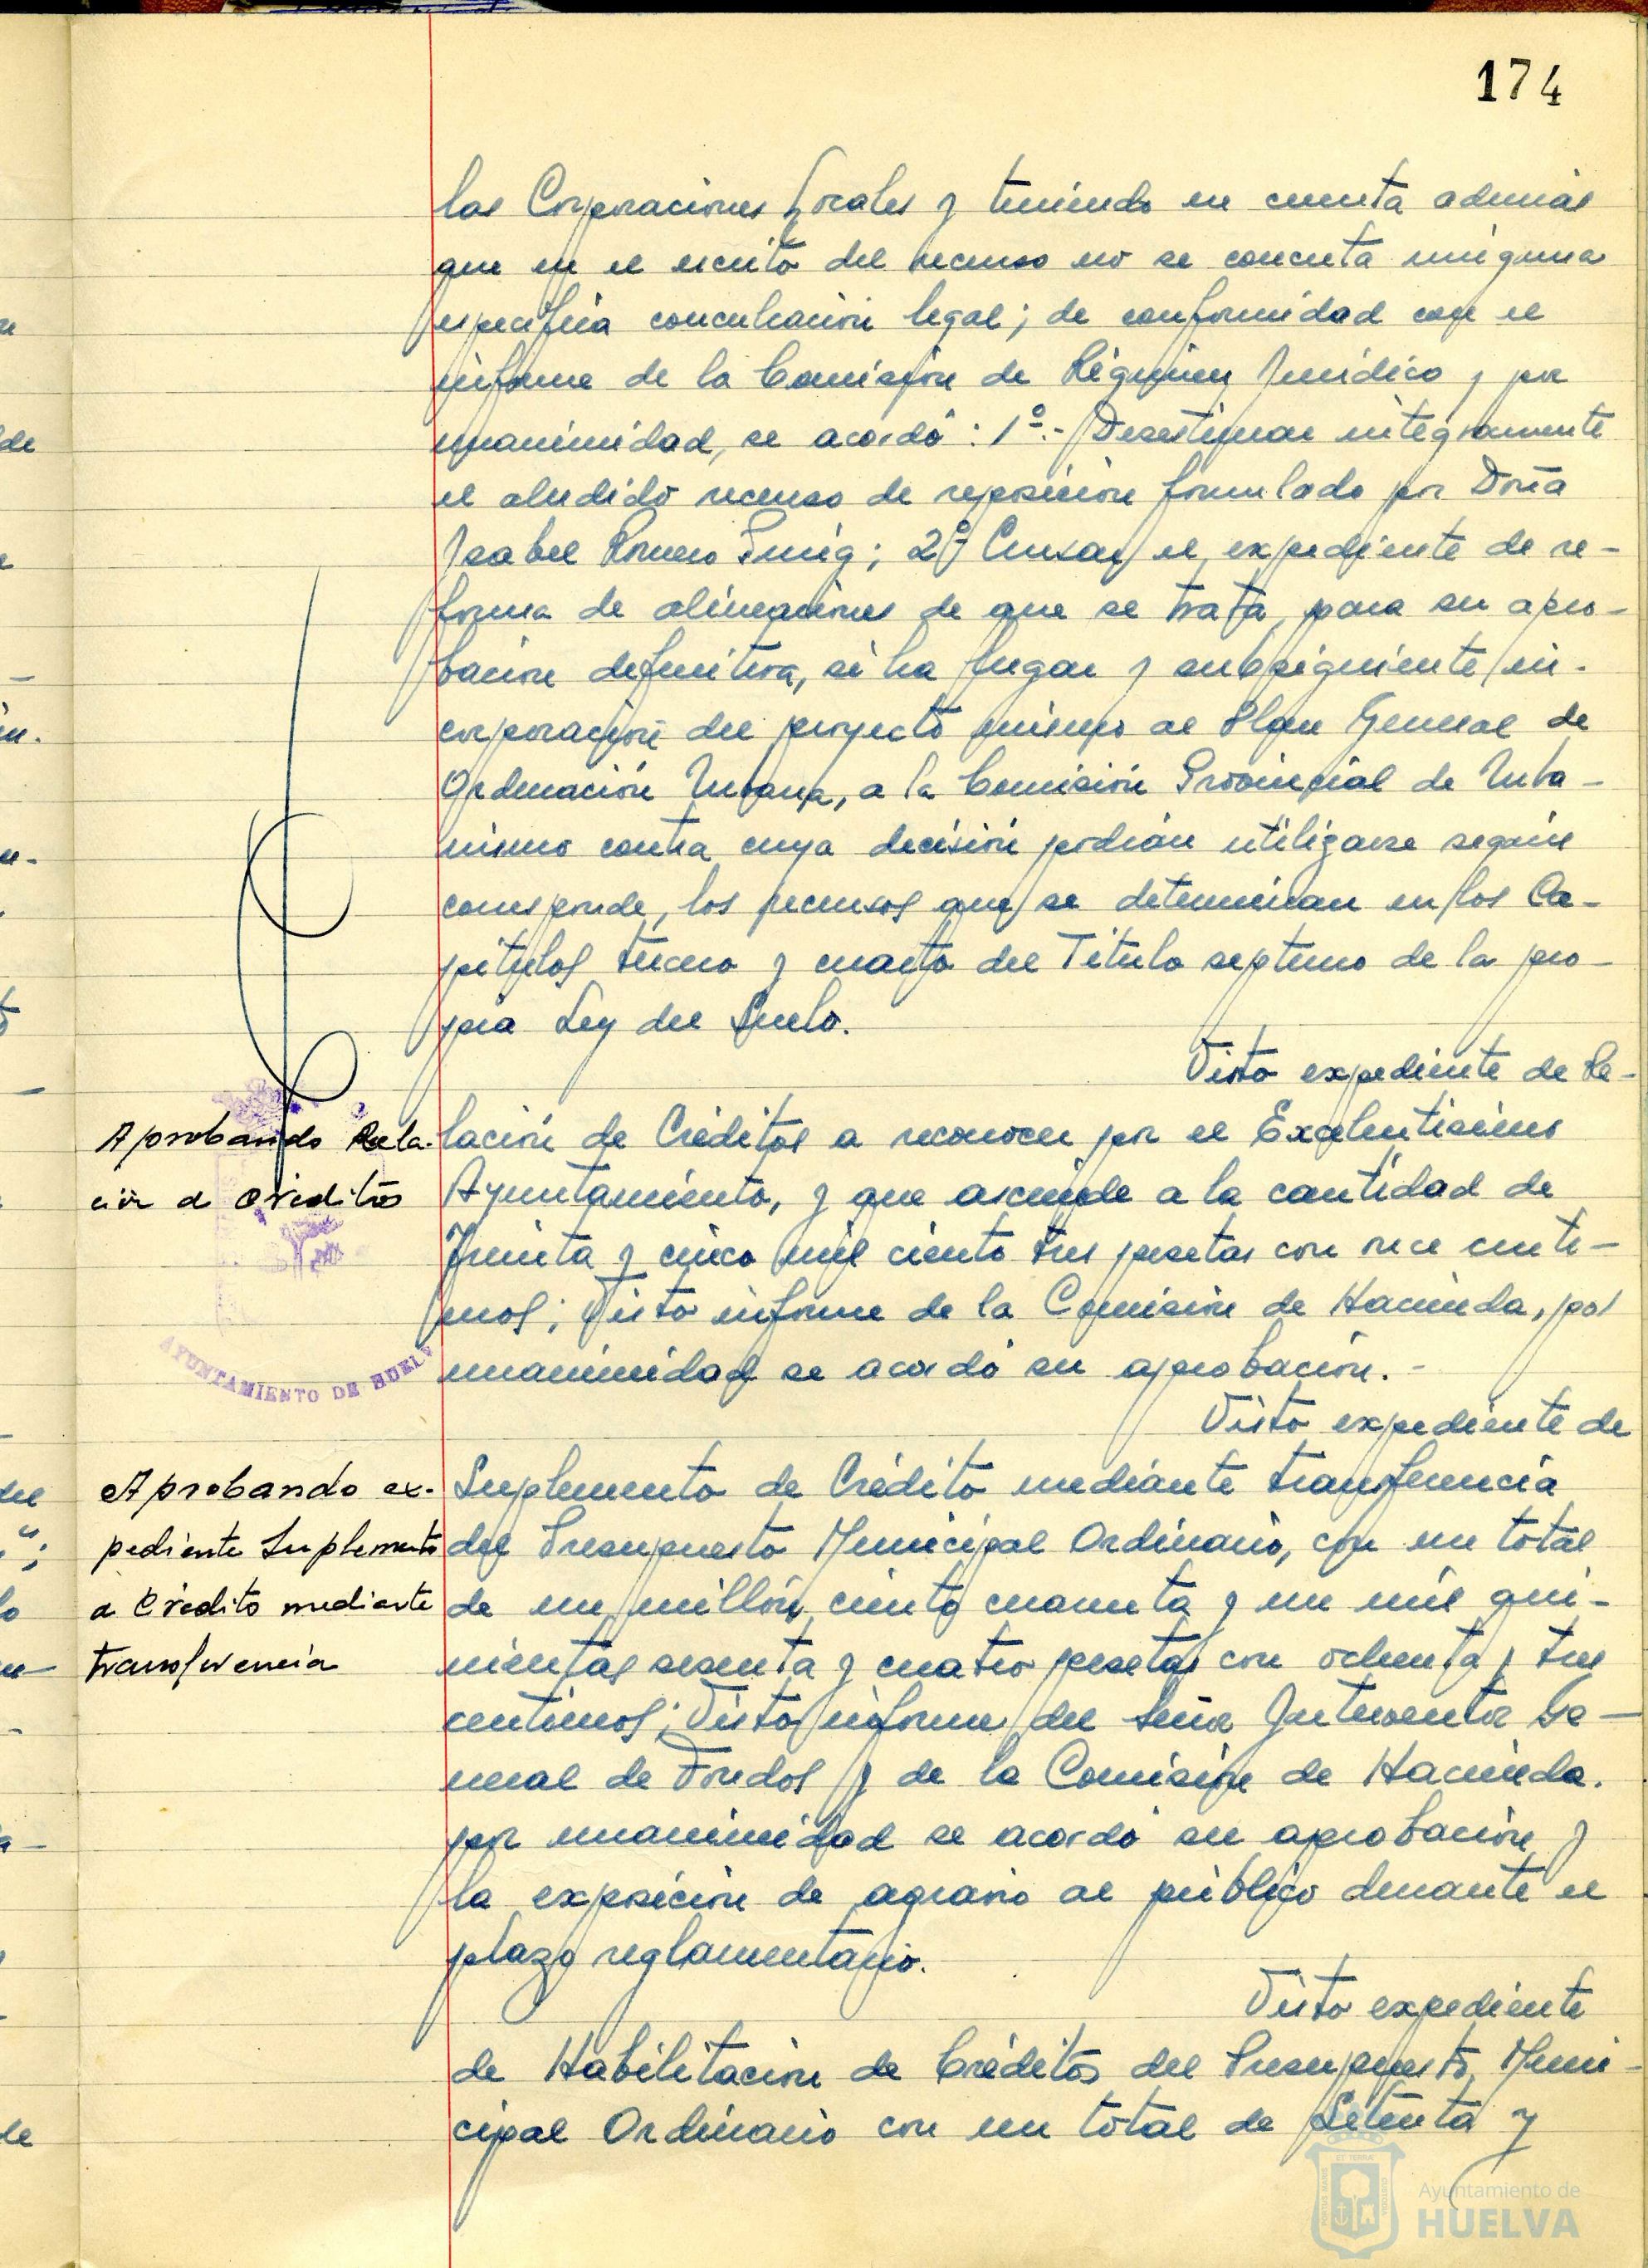 174
las Corporaciones Locales y teniendo en cuenta además
que en el escrito del recurso no se concreta ninguna
específica conculcación legal; de conformidad con el
informe de la Comisión de Régimen Jurídico y por
unanimidad, se acordó: 1º.- Desestimar integramente
el aludido recurso de reposición formulado por Doña
Isabel Romero Puig; 2º Cursar el expediente de re-
forma de alineaciones de que se trata, para su apro-
bación definitiva, si ha lugar y subsiguiente in-
corporación del proyecto mismo al Plan General de
Ordenación Urbana, a la Comisión Provincial de Urba-
nismo contra cuya decisión podrán utilizarse según
corresponde, los recursos que se determinan en los Ca-
pítulos tercero y cuarto del Título septimo de la pro-
pia Ley del Suelo.
Visto expediente de Re-
Aprobando Rela-
ción de Créditos
lación de Créditos a reconocer por el Excelentísimo
Ayuntamiento, y que asciende a la cantidad de
Treinta y cinco mil ciento tres pesetas con once cénti-
mos; Visto informe de la Comisión de Hacienda, por
unanimidad se acordó su aprobación.-
AYUNTAMIENTO DE HUELV
Visto expediente de
Aprobando ex-
pediente Suplemento
de Crédito mediante
transferencia
Suplemento de Crédito mediante transferencia
del Presupuesto Municipal Ordinario, con un total
de un millón ciento cuarenta y un mil qui-
nientas sesenta y cuatro pesetas con ochenta y tres
centimos; Visto informe del Señor Interventor Ge-
neral de Fondos y de la Comisión de Hacienda.
por unanimidad se acordó su aprobación y
la exposición de agravio al público durante el
plazo reglamentario.
Visto expediente
de Habilitación de Créditos del Presupuesto Muni-
cipal Ordinario con un total de Setenta y
Ayuntamiento de
HUELVA